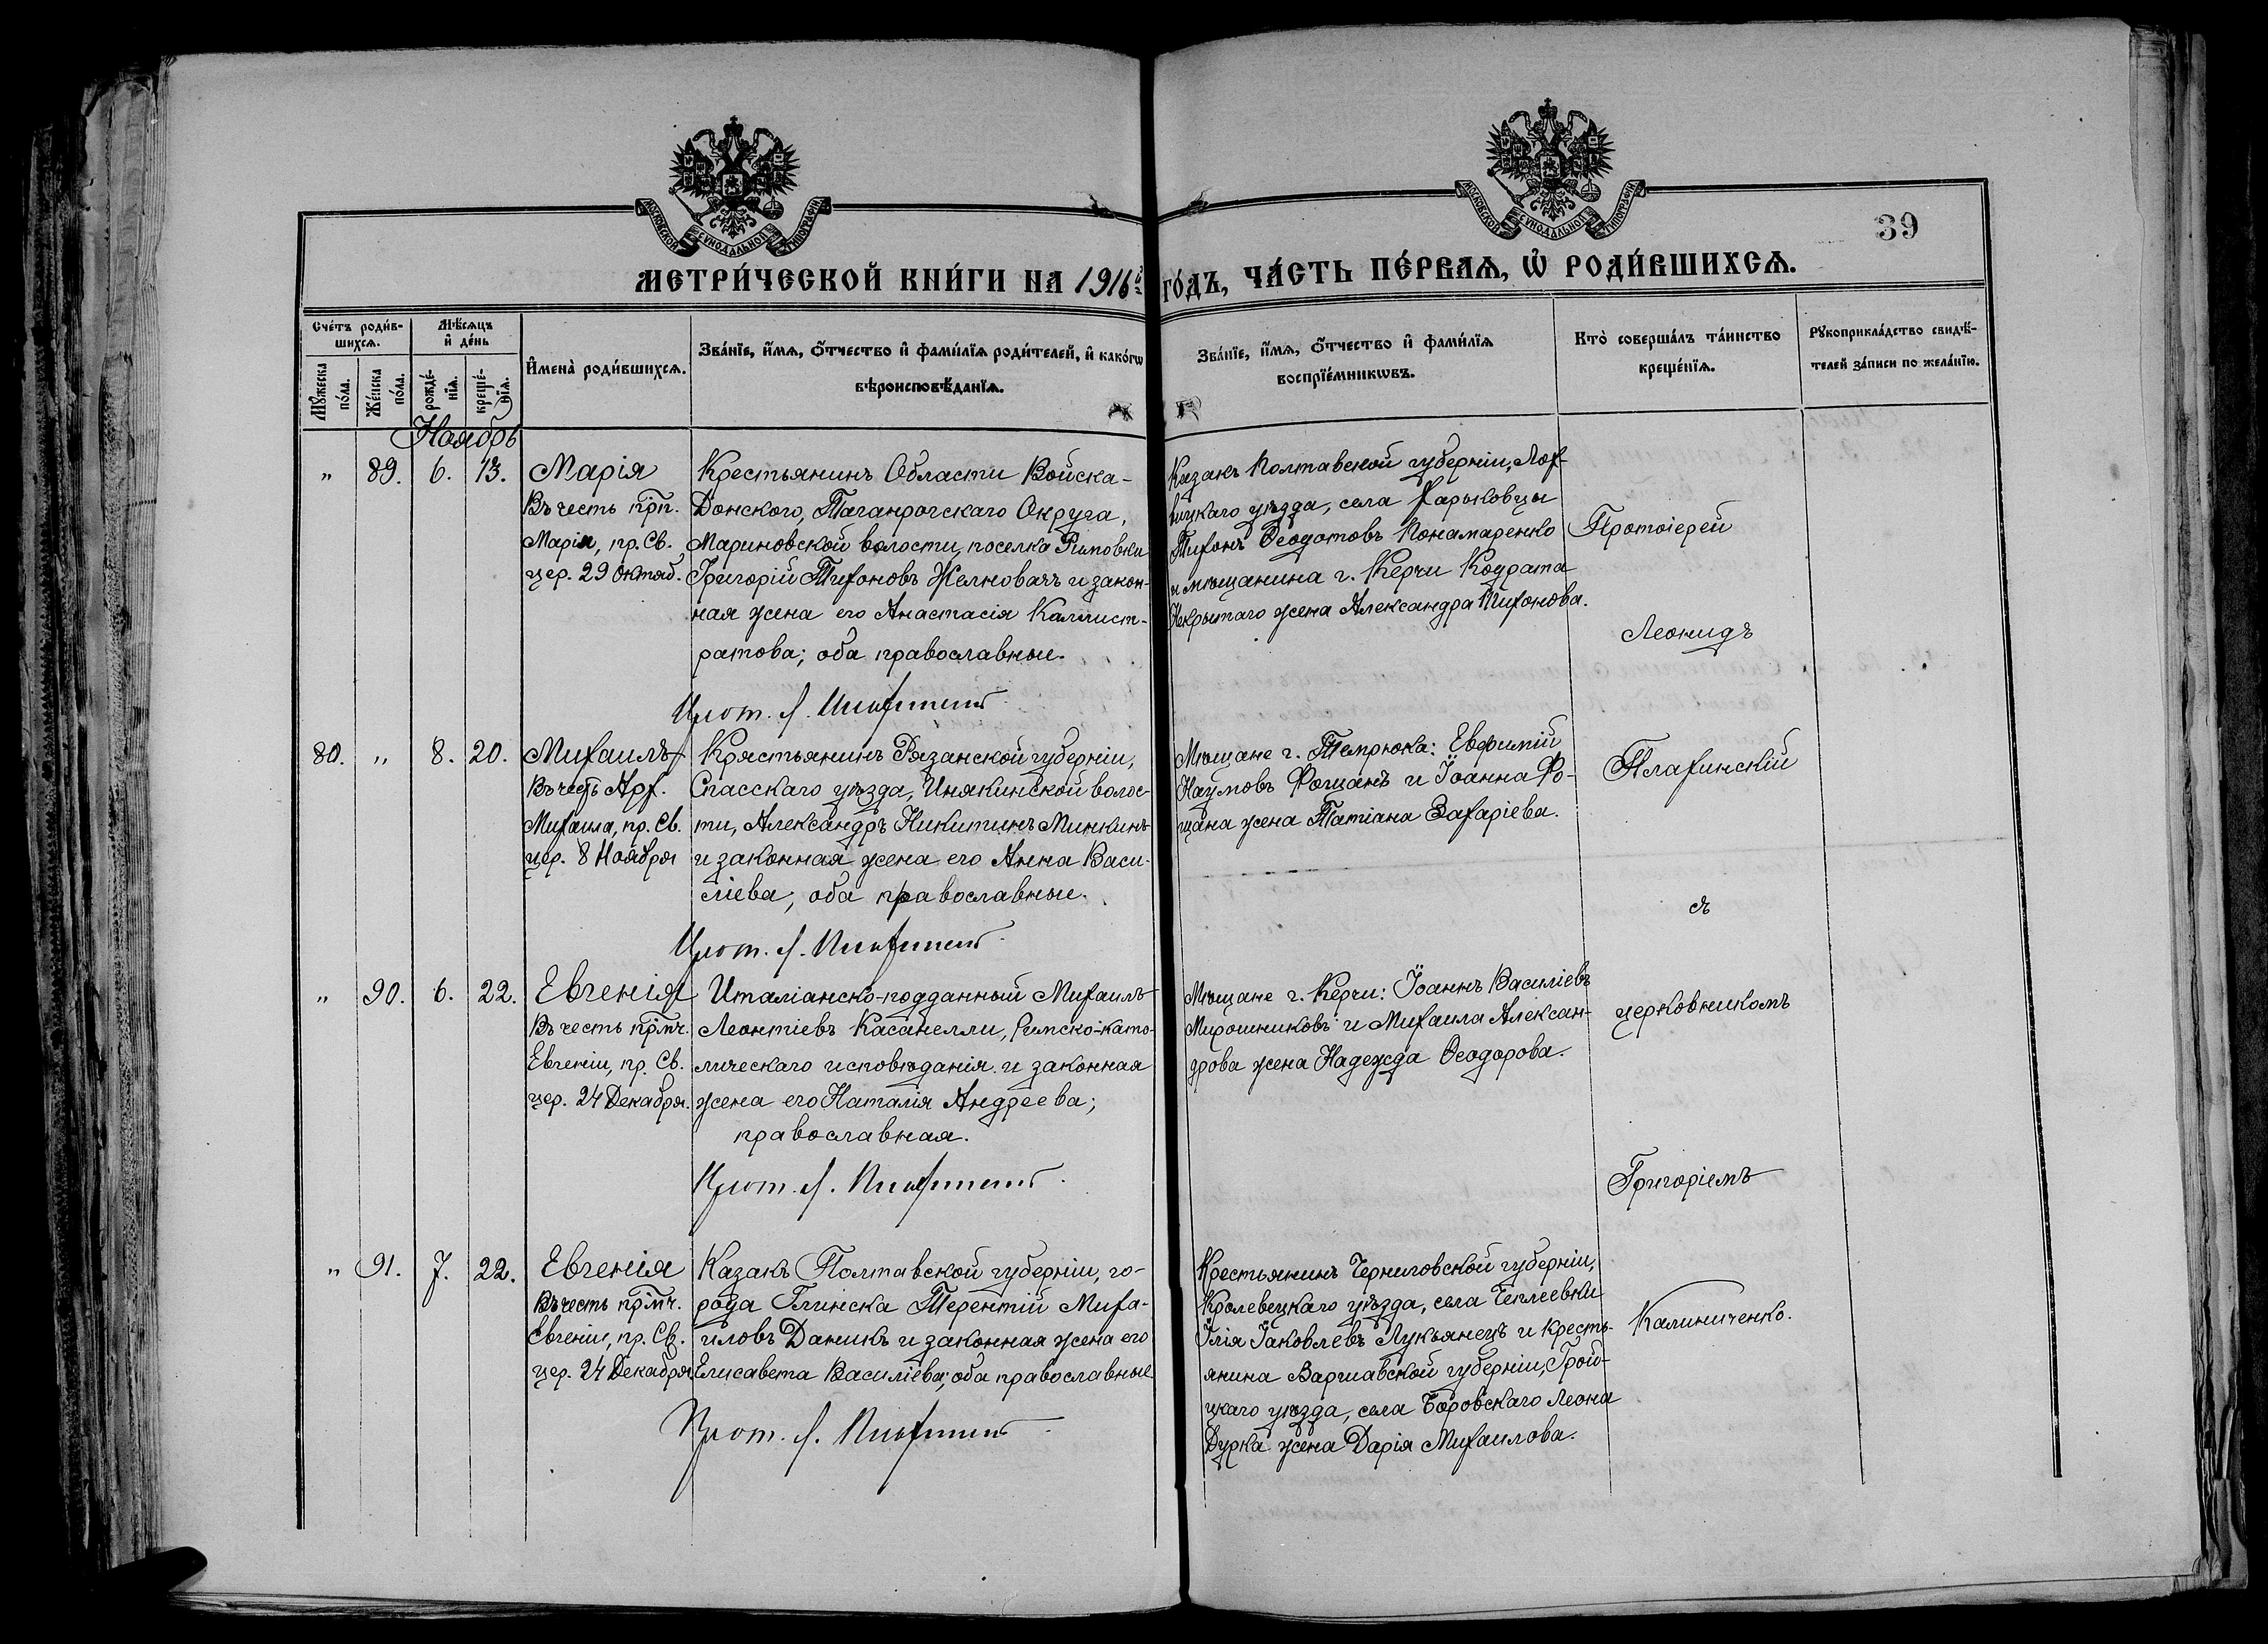 МОСКОВСКОЙ СѴНОДАЛЬНОЙ ТИПОГРАФІИ
МОСКОВСКОЙ СѴНОДАЛЬНОЙ ТИПОГРАФІИ
39
МЕТРИ́ЧЕСКОЙ КНИ́ГИ НА 1916й ГО́ДЪ, ЧА́СТЬ ПЕ́РВАѦ, Ѡ҆ РОДИ́ВШИХСѦ.
Сче́тъ роди́в-
шихсѧ.
Мꙋ́жеска по́ла.
Же́нска по́ла.
Мѣ́сѧцъ и҆ де́нь
рожде́-нїѧ.
креще́-нїѧ.
И҆мена̀ роди́вшихсѧ.
Зва́нїе, и҆́мѧ, ѻ҆́тчество и҆ фами́лїѧ роди́телей, и҆ како́гѡ
вѣроисповѣ́данїѧ.
Зва́нїе, и҆́мѧ, ѻ҆́тчество и҆ фами́лїѧ
воспрїе́мникѡвъ.
Кто̀ соверша́лъ та́инство
креще́нїѧ.
Рꙋкоприкла́дство свидѣ́-
телей за́писи по жела́нїю.
Ноябрь
„ 89. 6. 13.
Марія
Въ честь прп.
Маріи, пр. Св.
цер. 29 Октяб.
Крестьянинъ Области Войска-
Донского, Таганрогскаго Округа,
Мариновской волости, поселка
Григорій Тихоновъ Желновачъ и закон-
ная жена его Анастасія Каллист-
ратова; оба православные.
Прот. Л.
Казакъ Полтавской губерніи, Лох-
вицкаго уѣзда, села Харьковцы
Тихонъ Ѳеодотовъ Понамаренко
и мѣщанина г. Керчи Кодрата
Некрытаго жена Александра Тихонова.
80. „ 8. 20.
Михаилъ
Въ честь Арх.
Михаила, пр. Св.
цер. 8 Ноября
Крястьянинъ Рязанской губерніи,
Спасскаго уѣзда, Инякинской волос-
ти, Александръ Никитинъ Минкинъ
и законная жена его Анна Васи-
ліева, оба православные.
Прот. Л.
Мѣщане г. Темрюка: Евфимій
Наумовъ Фощанъ и Іоанна Фо-
щана жена Татіана Захаріева.
„ 90. 6. 22.
Евгенія
Въ честь прмч.
Евгеніи, пр. Св.
цер. 24 Декабря.
Италіанско-подданный Михаилъ
Леонтіевъ Касанелли, Римско-като-
лическаго исповѣданія и законная
жена его Наталія Андреева;
православная.
Прот. Л.
Мѣщане г. Керчи: Іоаннъ Василіевъ
Мирошниковъ и Михаила Алексан-
дрова жена Надежда Ѳеодорова.
„ 91. 7. 22.
Евгенія
Въ честь прмч.
Евгеніи, пр. Св.
цер. 24 Декабря
Казакъ Полтавской губерніи, го-
рода Глинска Терентій Миха-
иловъ Даникъ и законная жена его
Елисавета Василіева; оба православные
Прот. Л.
Крестьянинъ Черниговской губерніи,
Кролевецкаго уѣзда, села Чеплеевки
Ілія Іаковлевъ Лукьянецъ и кресть-
янина Варшавской губерніи, Грой-
цкаго уѣзда, села Боровскаго Леона
Дурка жена Дарія Михаилова.
Протоіерей
Леонидъ
Плахинскій
съ
церковникомъ
Григоріемъ
Калиниченко.